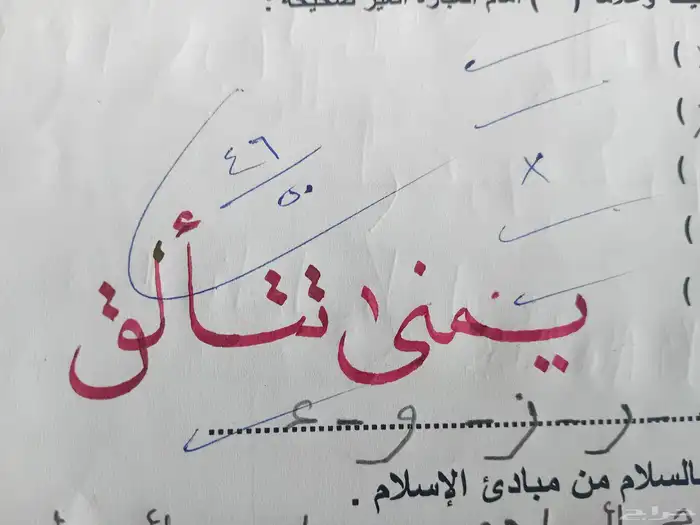 أمام العبارة الغير صحيحة :
٤٦
٥٠
يمنى تتألق
ر - ز - و - ع
بالسلام من مبادئ الإسلام .
حراج